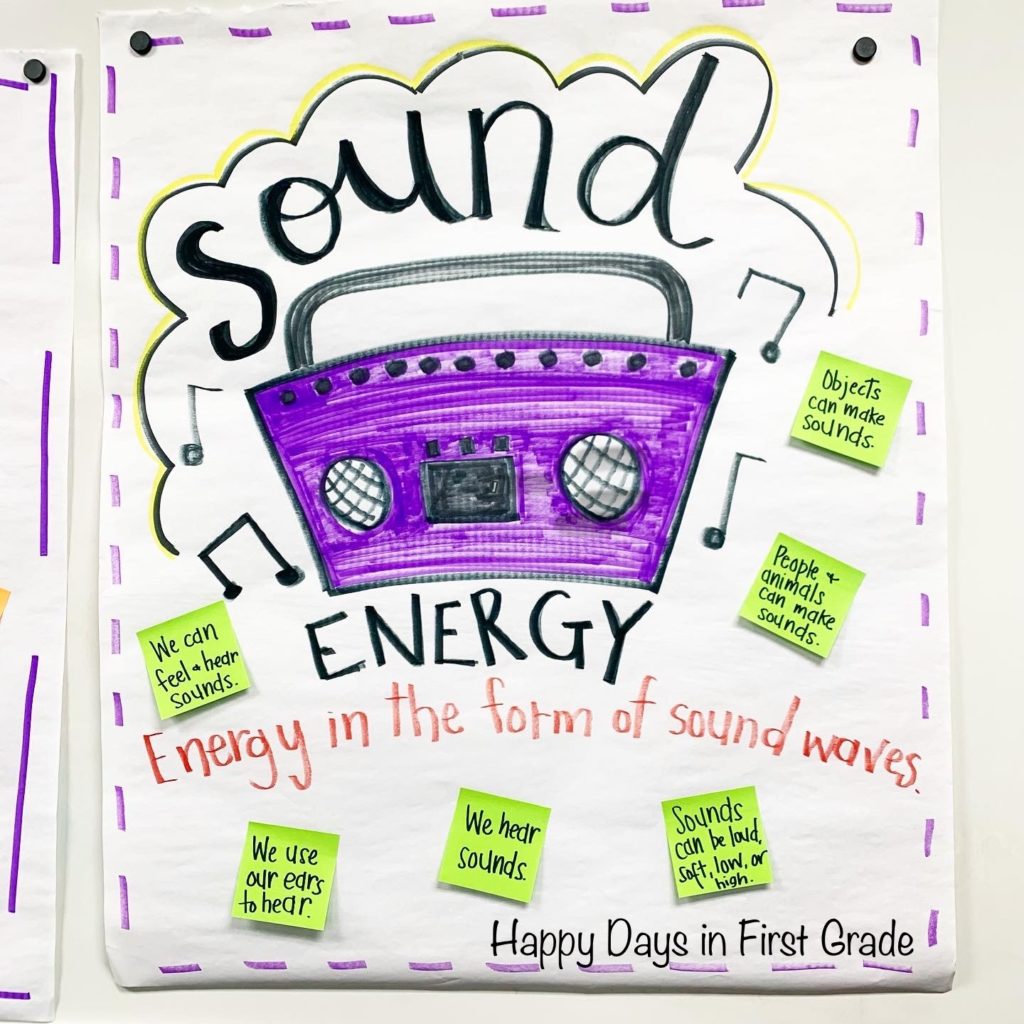 Sound
ENERGY
Objects
can make
sounds.
People +
animals
can make
sounds.
We can
feel + hear
sounds.
Energy in the form of sound waves.
We use
our ears
to hear.
We hear
sounds.
Sounds
can be loud,
soft, low, or
high.
Happy Days in First Grade